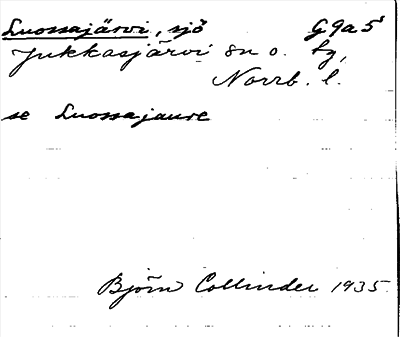 Luossajärvi, sjö G9a5
Jukkasjärvi sn o. tg,
Norrb. l.
se Luossajaure
Björn Collinder 1935